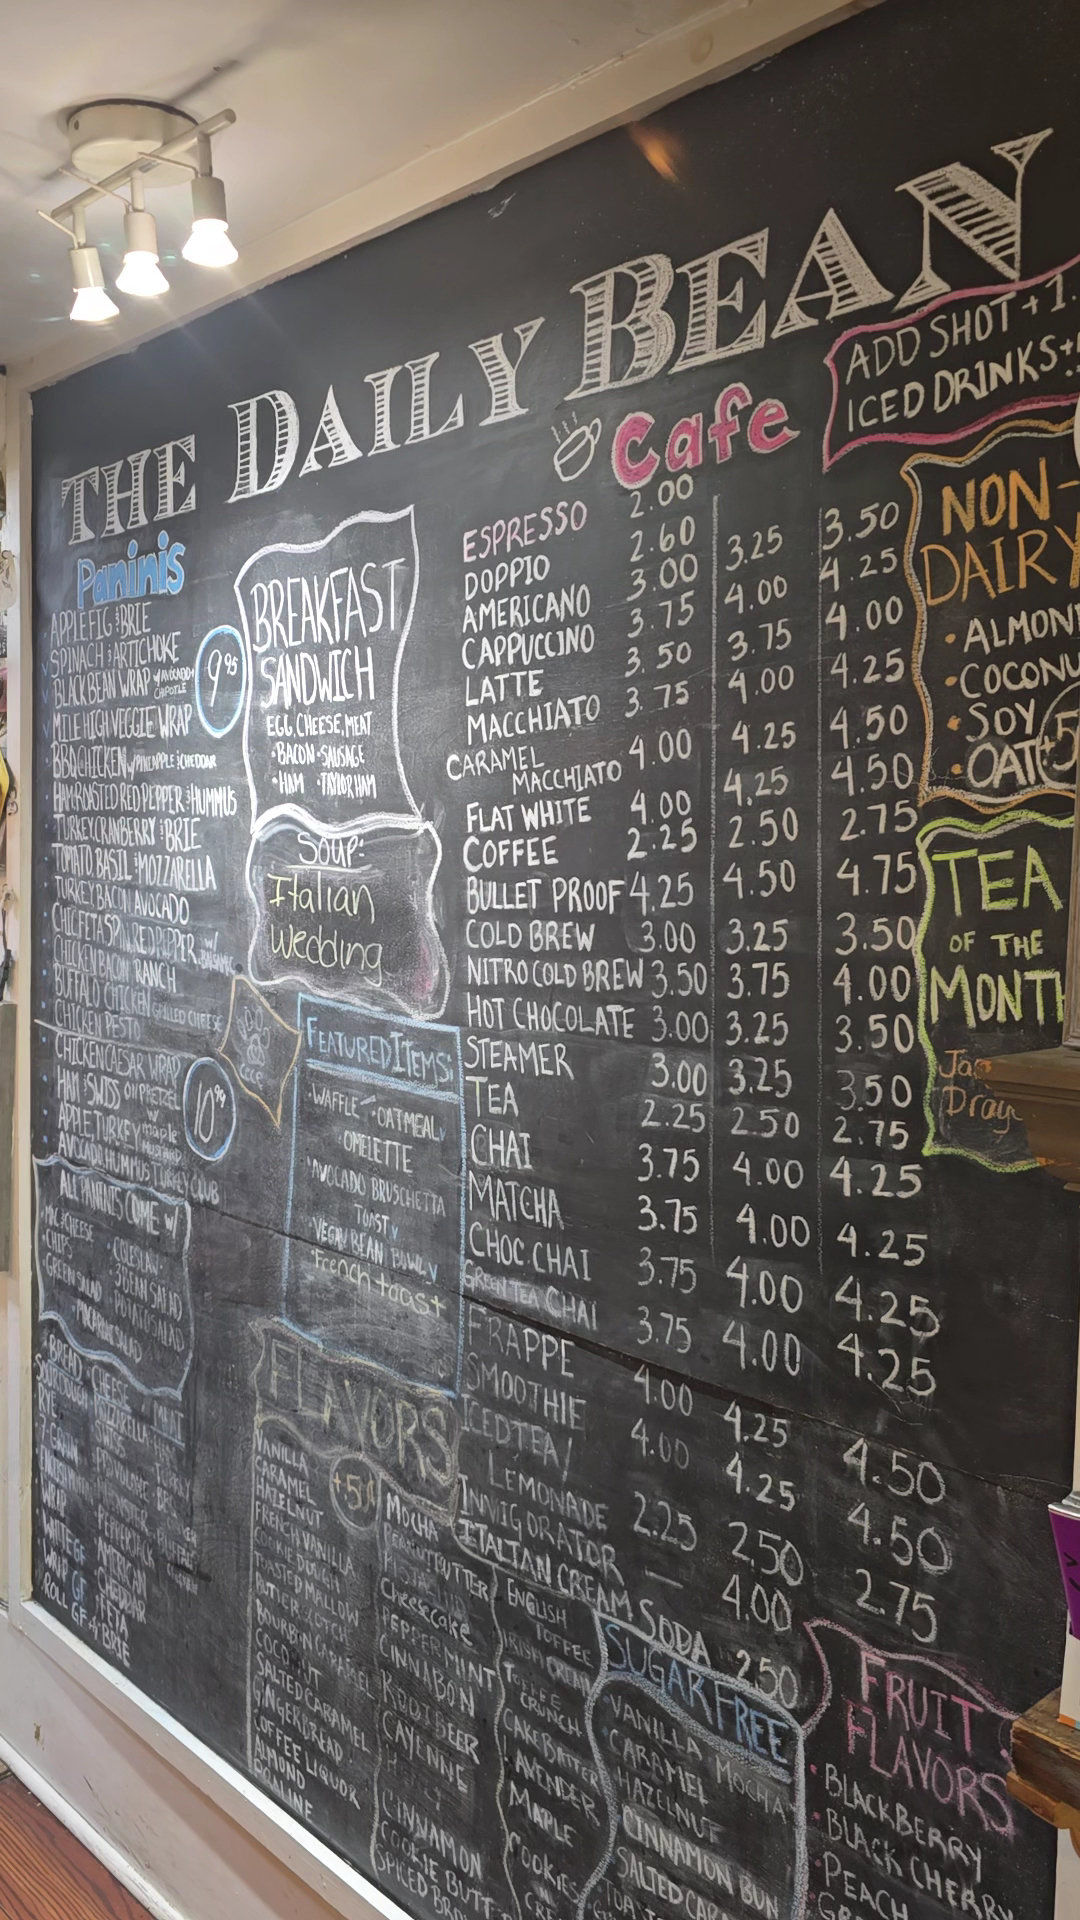 THE DAILY BEAN
Cafe
ADD SHOT + 1.
ICED DRINKS +
Paninis
APPLE FIG & BRIE
SPINACH & ARTICHOKE
BLACK BEAN WRAP w/ AVOCADO + CHIPOTLE
MILE HIGH VEGGIE WRAP
BBQ CHICKEN w/ PINEAPPLE & CHEDDAR
HAM ROASTED RED PEPPER & HUMMUS
TURKEY, CRANBERRY & BRIE
TOMATO, BASIL & MOZZARELLA
TURKEY BACON AVOCADO
CHIC FETA SPIN RED PEPPER w/
CHICKEN BACON RANCH
BUFFALO CHICKEN GRILLED CHEESE
CHICKEN PESTO
9.95
CHICKEN CAESAR WRAP
HAM & SWISS ON PRETZEL w/
APPLE TURKEY maple
AVOCADO HUMMUS TURKEY CLUB
ALL PANINIS COME w/
MAC & CHEESE
CHIPS
GREEN SALAD
MACARONI SALAD
COLESLAW
3 BEAN SALAD
POTATO SALAD
BREAD
SOURDOUGH
RYE
7-GRAIN
WRAP
WHITE GF
WRAP GF
ROLL GF
CHEESE
MOZZARELLA
SWISS
PROVOLONE
PEPPERJACK
AMERICAN
CHEDDAR
FETA
BRIE
BREAKFAST
SANDWICH
EGG, CHEESE, MEAT
• BACON • SAUSAGE
• HAM • TAYLOR HAM
SOUP:
Italian
Wedding
FEATURED ITEMS:
• WAFFLE • OATMEAL
• OMELETTE
• AVOCADO BRUSCHETTA
TOAST v
VEGAN BEAN BOWL v
• French toast
FLAVORS
+50¢
VANILLA
CARAMEL
HAZELNUT
FRENCH VANILLA
COOKIE DOUGH
TOASTED MALLOW
BUTTERSCOTCH
BOURBON CARAMEL
COCONUT
SALTED CARAMEL
GINGERBREAD
COFFEE LIQUOR
ALMOND
PRALINE
MOCHA
PEANUT BUTTER
Cheesecake
PEPPERMINT
CINNABON
ROOTBEER
CAYENNE
CINNAMON
COOKIE BUTT
SPICED BRO
ENGLISH
TOFFEE
IRISH CREAM
TOFFEE
CRUNCH
CAKE BATTER
LAVENDER
MAPLE
COOKIES
ESPRESSO 2.00
DOPPIO 2.60 3.25 3.50
AMERICANO 3.00 4.00 4.25
CAPPUCCINO 3.75 3.75 4.00
LATTE 3.50 4.00 4.25
MACCHIATO 3.75 4.25 4.50
CARAMEL
MACCHIATO 4.00 4.25 4.50
FLAT WHITE 4.00
COFFEE 2.25 2.50 2.75
BULLET PROOF 4.25 4.50 4.75
COLD BREW 3.00 3.25 3.50
NITRO COLD BREW 3.50 3.75 4.00
HOT CHOCOLATE 3.00 3.25 3.50
STEAMER 3.00 3.25 3.50
TEA 2.25 2.50 2.75
CHAI 3.75 4.00 4.25
MATCHA 3.75 4.00 4.25
CHOC. CHAI 3.75 4.00 4.25
GREEN TEA CHAI 3.75 4.00 4.25
FRAPPE 4.00 4.25 4.50
SMOOTHIE 4.00 4.25 4.50
ICED TEA /
LEMONADE 2.25 2.50 2.75
INVIGORATOR — 4.00
ITALIAN CREAM SODA 2.50
NON-
DAIRY
• ALMON
• COCONU
• SOY
• OAT
TEA
OF THE
MONTH
SUGAR FREE
VANILLA
CARAMEL
MOCHA
HAZELNUT
CINNAMON BUN
SALTED CARA
FRUIT
FLAVORS
• BLACKBERRY
• BLACK CHERRY
• PEACH